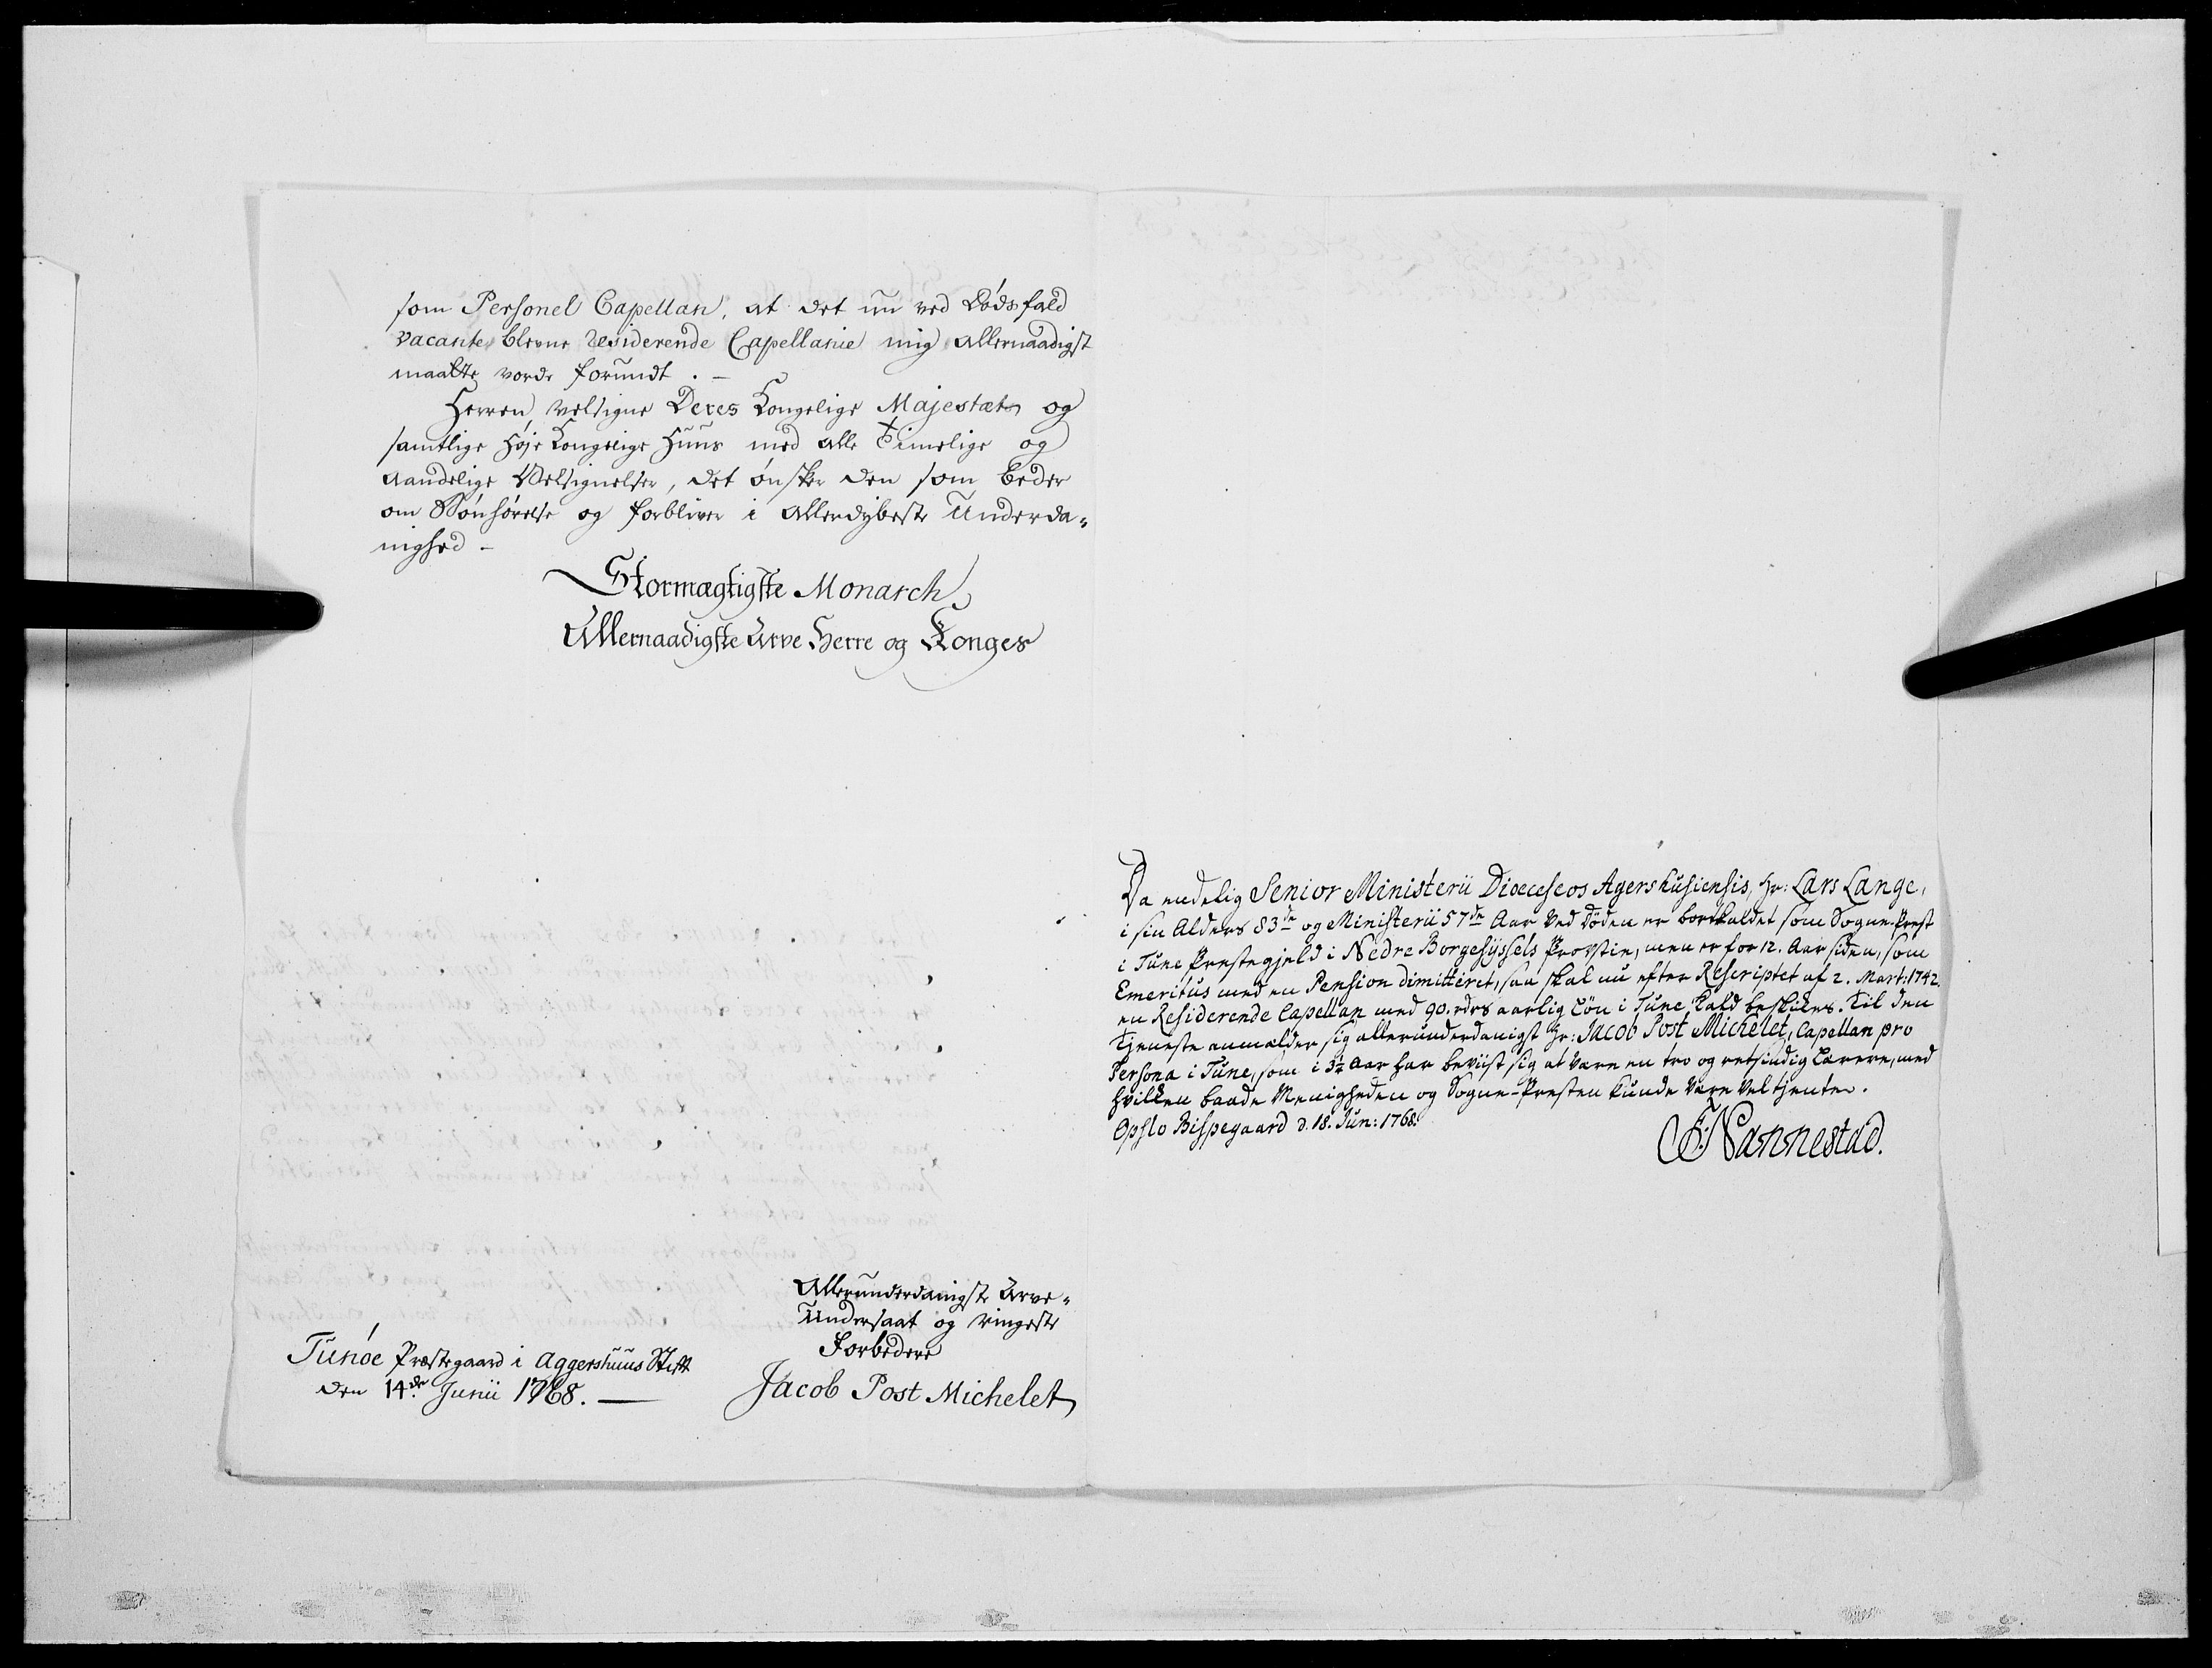 som Personel Capellan, at det nu ved Dødsfald
vacante blevne residerende Capellanie mig allernaadigst
maatte vorde forundt. –
Herren velsigne Deres Kongelige Majestæt og
samtlige høje Kongelige Huus med alle timelige og
aandelige Velsignelser, det ønsker den som beder
om Bønhørelse og forbliver i allerdybeste Underda=
nighed –
Stormægtigste Monarch
Allernaadigste Arve Herre og Konges
Allerunderdanigste Arve=
Undersaat og ringeste
Forbedere
Jacob Post Michelet
Tunøe Præstegaard i Aggershuus Stift
den 14de Junii 1768. —
Da endelig Senior Ministerii Dioeceseos Agershusiensis, Hr: Lars Lange,
i sin Alders 83de og Ministerii 57de Aar ved Döden er bortkaldet som Sogne-Prest
i Tune Prestegjeld i Nedre Borgesyssels Provstie, men er for 12. Aar siden, som
Emeritus med en Pension dimitteret, saa skal nu efter Rescriptet af 2. Mart: 1742.
en Residerende Capellan med 90. rdrs aarlig Lön i Tune Kald beskikes. Til den
Tjeneste anmelder sig allerunderdanigst Hr: Jacob Post Michelet, Capellan pro
Persona i Tune, som i 3½ Aar har beviist sig at være en tro og retsindig Lærere, med
hvilken baade Menigheden og Sogne-Presten kunde være vel tjente.
Opslo Bispegaard d. 18. Jun: 1768.
F: Nannestad.